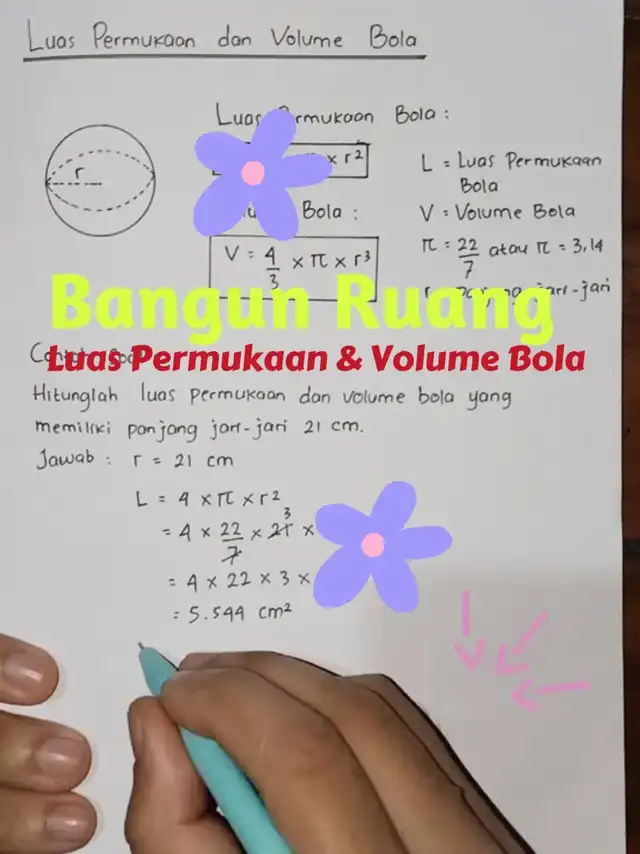 Luas Permukaan dan Volume Bola
r
Luas Permukaan Bola :
x r²
Bola :
V = 4/3 x π x r³
L = Luas Permukaan
Bola
V = Volume Bola
π = 22/7 atau π = 3,14
jari-jari
Bangun Ruang
Luas Permukaan & Volume Bola
Hitunglah luas permukaan dan volume bola yang
memiliki panjang jari-jari 21 cm.
Jawab : r = 21 cm
L = 4 x π x r²
= 4 x 22/7 x 21 x
3
= 4 x 22 x 3 x
= 5.544 cm²